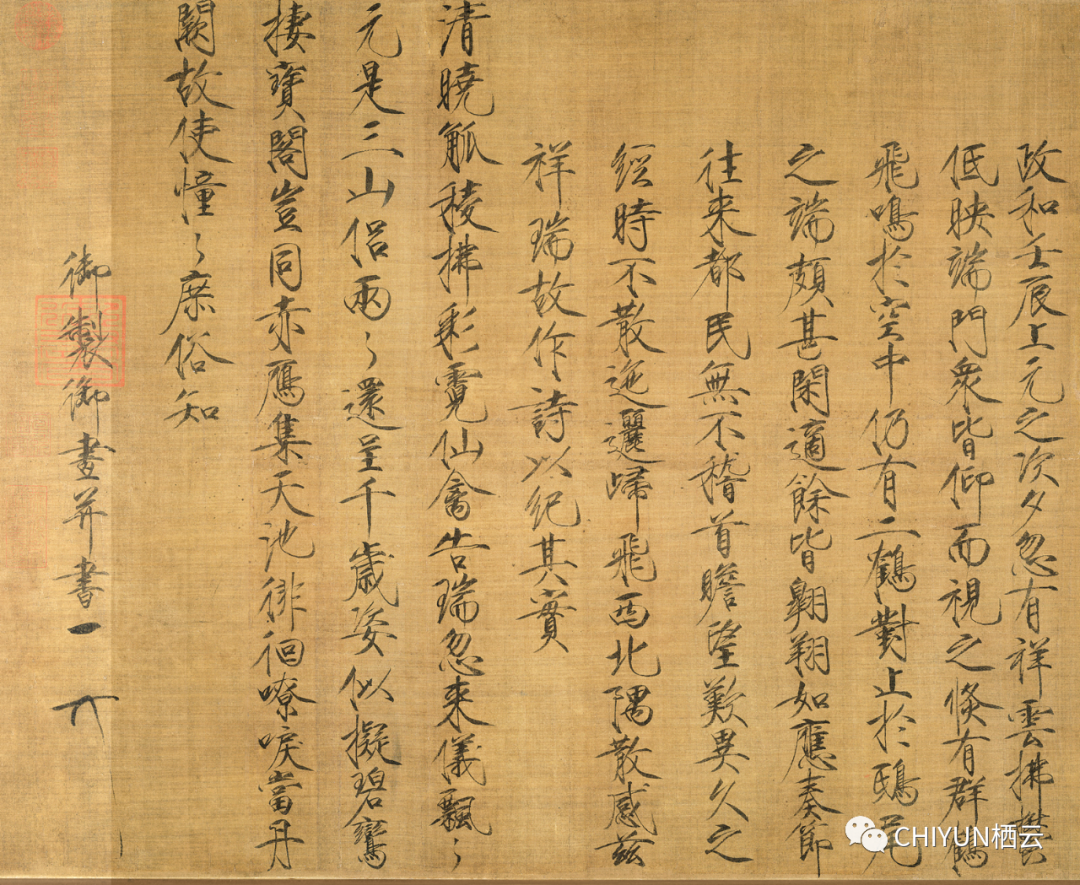 政和壬辰上元之次夕忽有祥雲拂鬱
低映端門衆皆仰而視之倏有群鶴
飛鳴於空中仍有二鶴對止於鴟尾
之端頗甚閑適餘皆翱翔如應奏節
往来都民無不稽首瞻望歎異久之
經時不散迤邐歸飛西北隅散感茲
祥瑞故作詩以紀其實
清曉觚稜拂彩霓仙禽告瑞忽来儀飄〻
元是三山侶兩〻還呈千歲姿似擬碧鸞
棲寶閣豈同赤鴈集天池徘徊嘹唳當丹
闕故使憧〻庶俗知
御製御畫并書
CHIYUN栖云